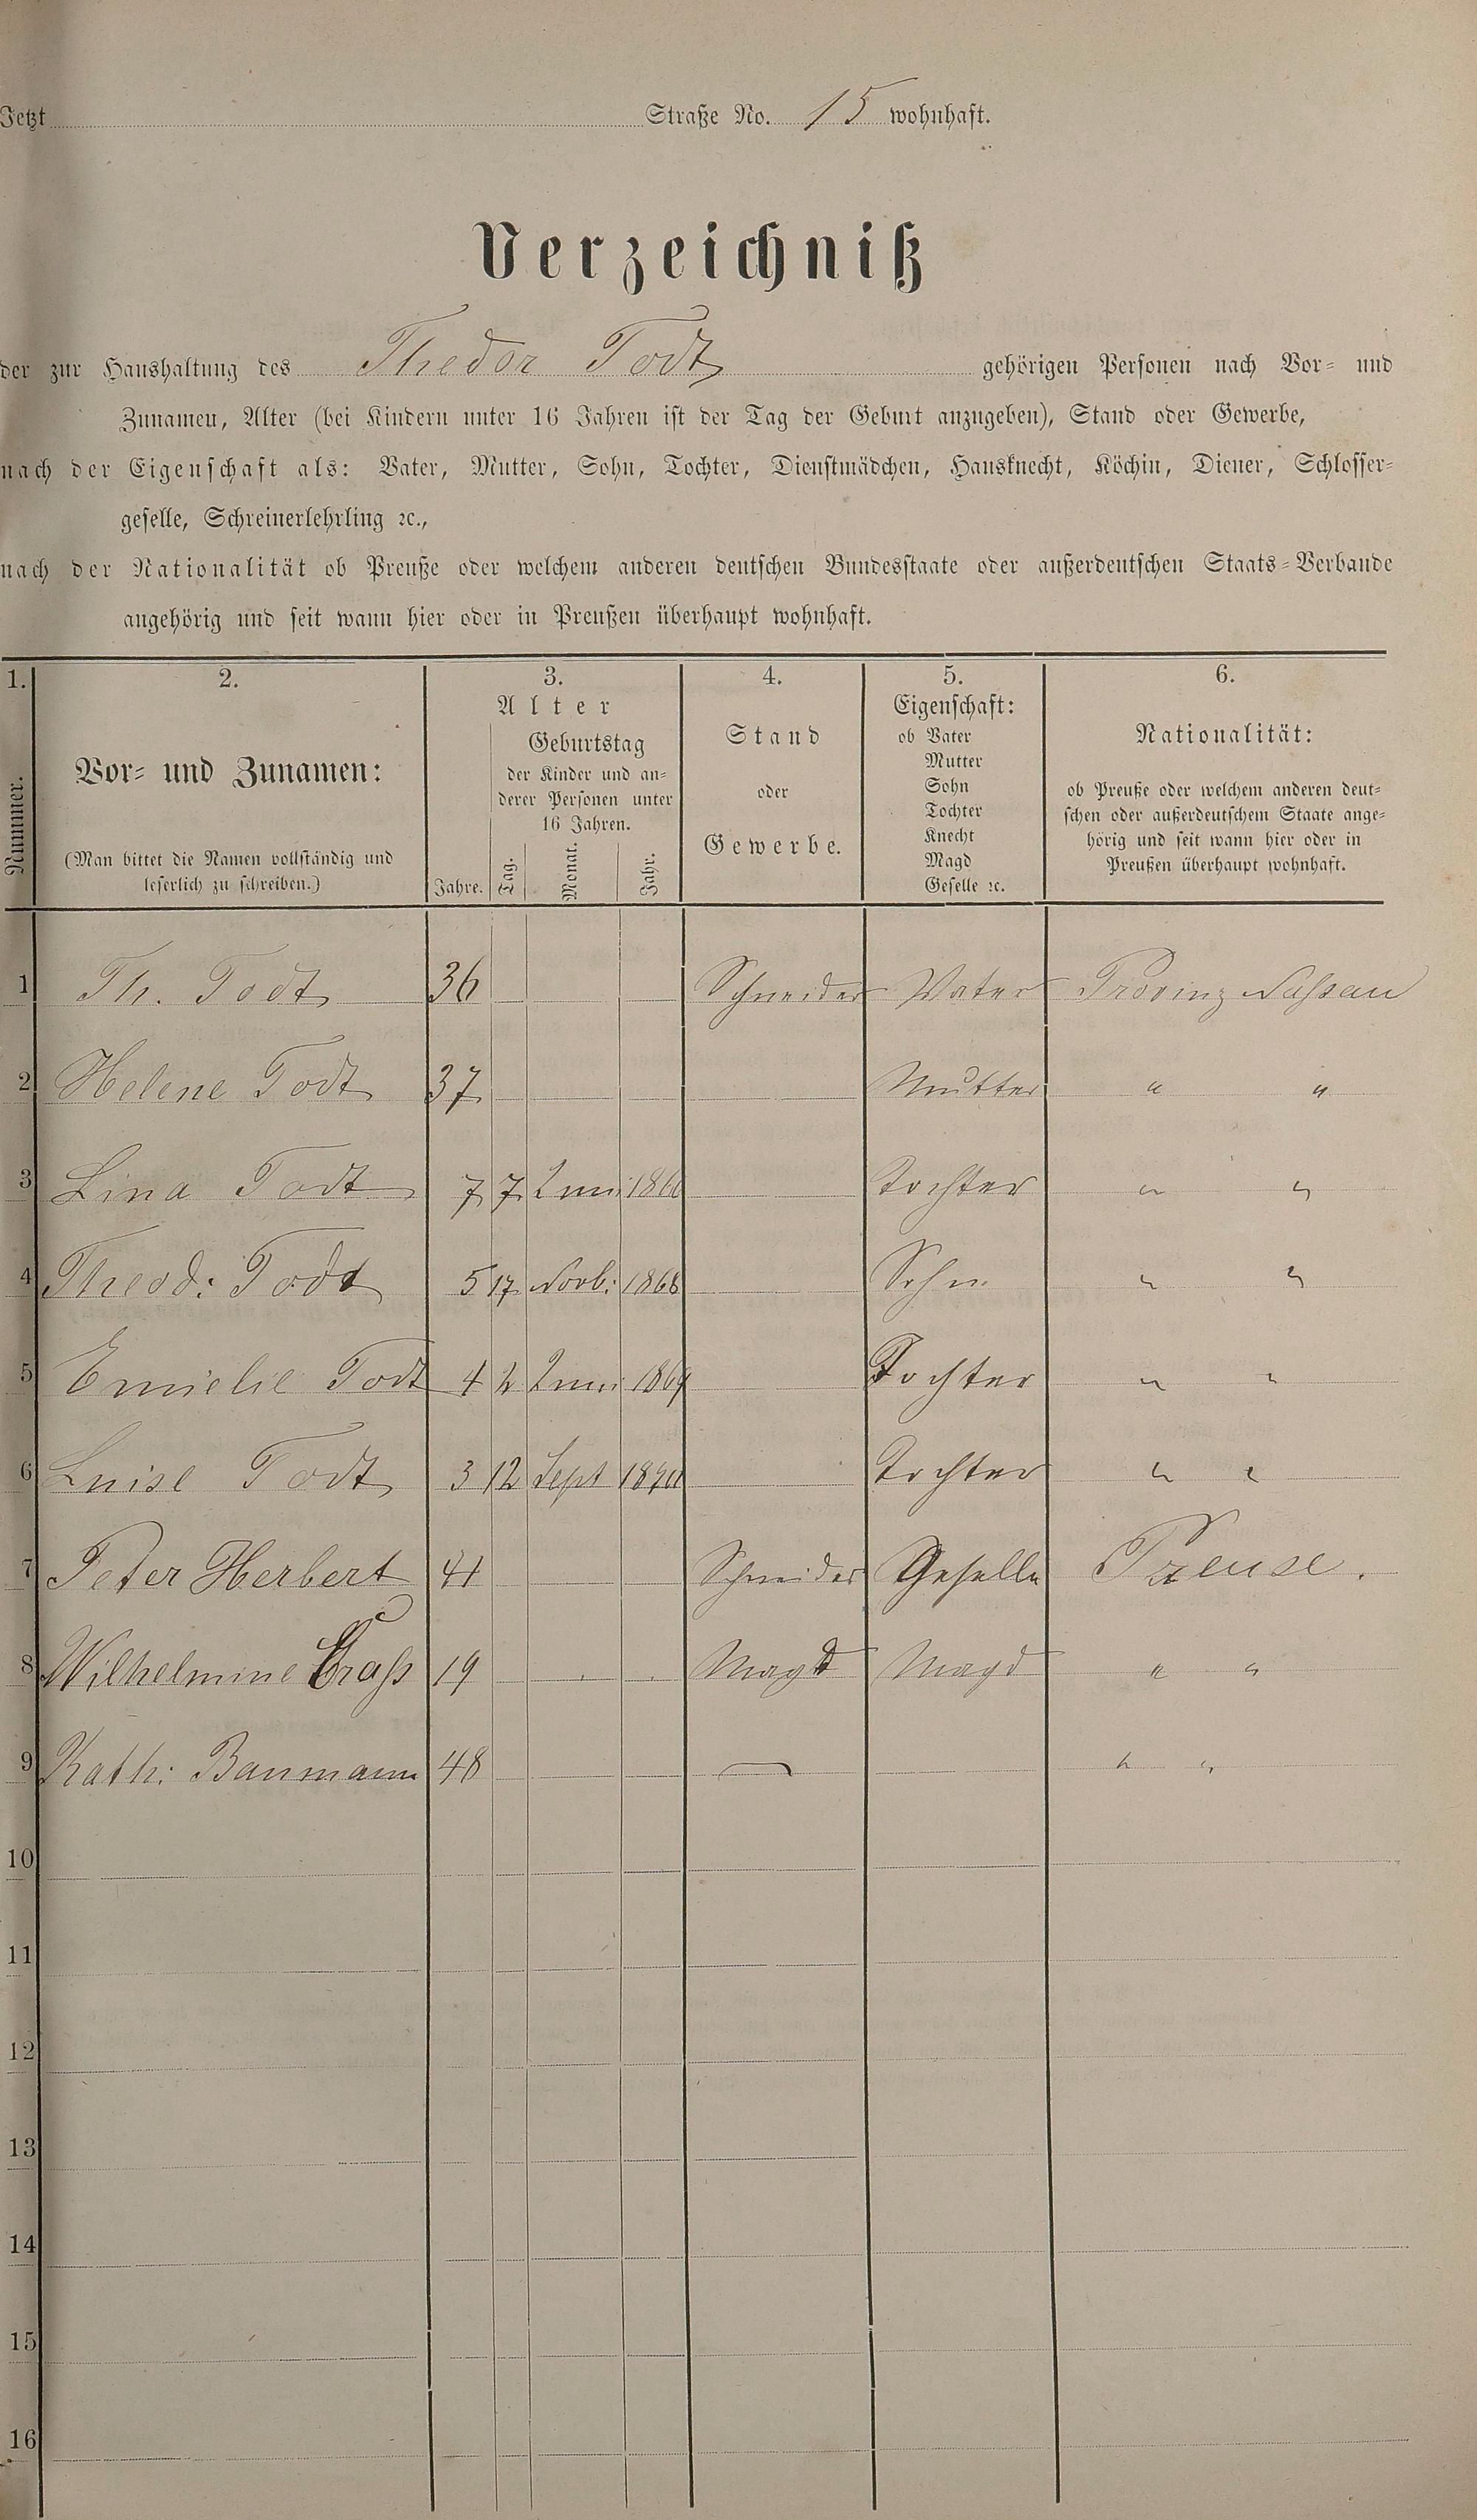 Jetzt Straße No. 15 wohnhaft.
Verzeichniß
der zur Haushaltung des Thedor Todt gehörigen Personen nach Vor- und
Zunamen, Alter (bei Kindern unter 16 Jahren ist der Tag der Geburt anzugeben), Stand oder Gewerbe,
nach der Eigenschaft als: Vater, Mutter, Sohn, Tochter, Dienstmädchen, Hausknecht, Köchin, Diener, Schlosser-
geselle, Schreinerlehrling ꝛc.,
nach der Nationalität ob Preuße oder welchem anderen deutschen Bundesstaate oder außerdeutschen Staats-Verbande
angehörig und seit wann hier oder in Preußen überhaupt wohnhaft.
1. 2. 3. 4. 5. 6.
Nummer.
Vor- und Zunamen:
(Man bittet die Namen vollständig und
leserlich zu schreiben.)
Alter
Geburtstag
der Kinder und an-
derer Personen unter
16 Jahren.
Jahre. Tag. Monat. Jahr.
Stand
oder
Gewerbe.
Eigenschaft:
ob Vater
Mutter
Sohn
Tochter
Knecht
Magd
Geselle ꝛc.
Nationalität:
ob Preuße oder welchem anderen deut-
schen oder außerdeutschem Staate ange-
hörig und seit wann hier oder in
Preußen überhaupt wohnhaft.
1 Th. Todt 36 Schneider Vater Provinz Naßau
2 Helene Todt 37 Mutter " "
3 Lina Todt 7 7 Juni 1866 Tochter " "
4 Theod: Todt 5 17 Novb: 1868 Sohn " "
5 Emielie Todt 4 2 Juni 1869 Tochter " "
6 Luise Todt 3 12 Sept 1870 Tochter " "
7 Peter Herbert 41 Schneider Geselle Preuse.
8 Wilhelmine Craß 19 Magd Magd " "
9 Kath: Baumann 48 — " "
10
11
12
13
14
15
16